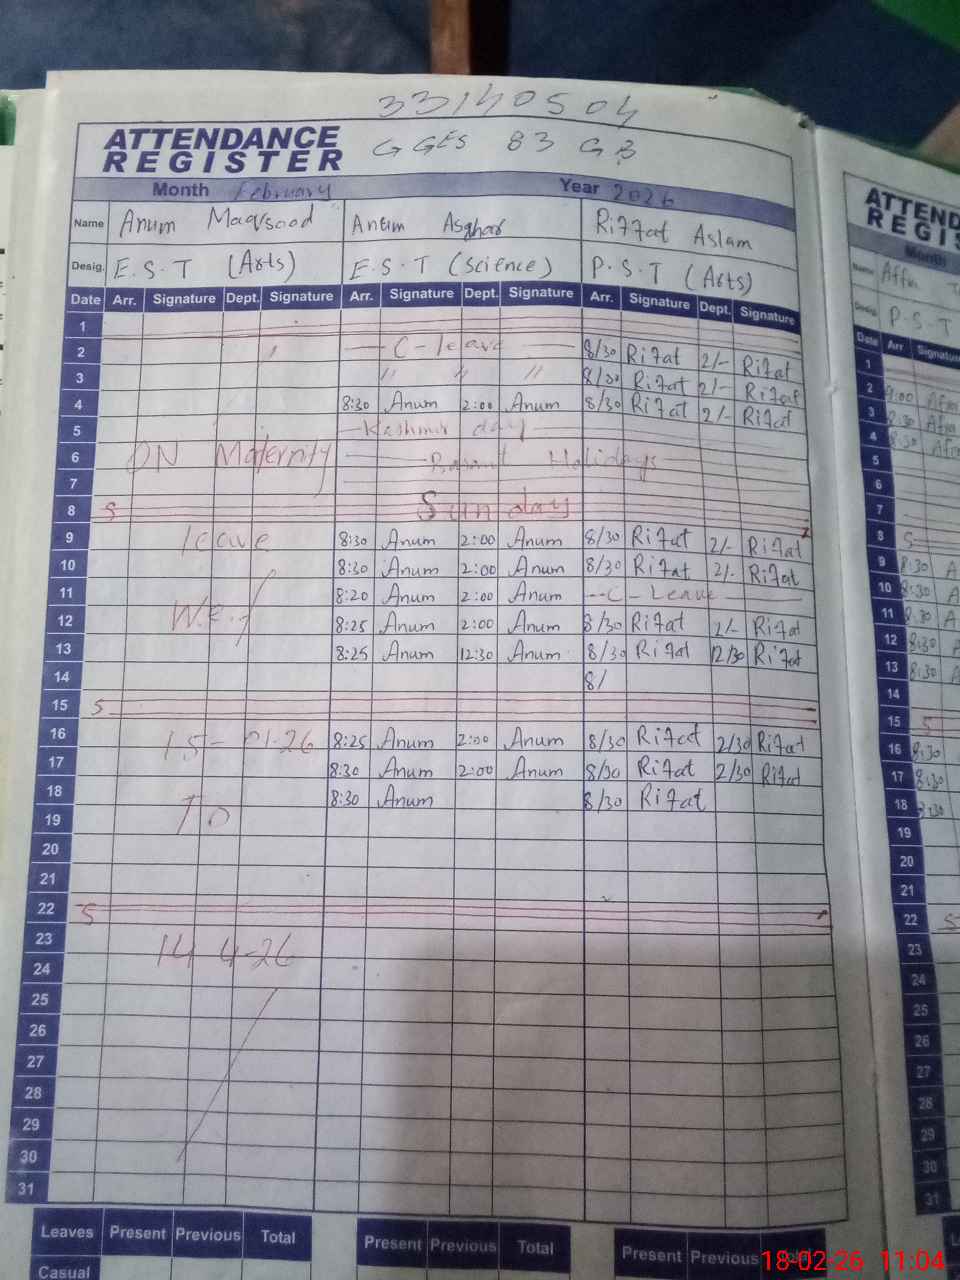 33140504
ATTENDANCE GGES 83 GB
REGISTER
Month February Year 2026
Name Anum Maqsood Anum Asghar Riffat Aslam
Desig. E.S.T (Arts) E.S.T (Science) P.S.T (Arts)
Date Arr. Signature Dept. Signature Arr. Signature Dept. Signature Arr. Signature Dept. Signature
1
2 C-leave 8/30 Rifat 2/- Rifat
3 " " " 8/30 Rifat 2/- Rifat
4 8:30 Anum 2:00 Anum 8/30 Rifat 2/- Rifat
5 Kashmir day
6 ON Maternity Basant Holidays
7
8 S Sunday
9 leave 8:30 Anum 2:00 Anum 8/30 Rifat 2/- Rifat
10 8:30 Anum 2:00 Anum 8/30 Rifat 2/- Rifat
11 8:20 Anum 2:00 Anum C-Leave
12 W.e.f 8:25 Anum 2:00 Anum 8/30 Rifat 2/- Rifat
13 8:25 Anum 12:30 Anum 8/30 Rifat 12/30 Rifat
14 8/
15 S
16 15-01-26 8:25 Anum 2:00 Anum 8/30 Rifat 2/30 Rifat
17 8:30 Anum 2:00 Anum 8/30 Rifat 2/30 Rifat
18 8:30 Anum 8/30 Rifat
19 TO
20
21
22 S
23 14 4-26
24
25
26
27
28
29
30
31
Leaves Present Previous Total Present Previous Total Present Previous
Casual
ATTEND
REGIS
Month
Name Afm
Desig. P.S.T
Date Arr Signature
1
2 9:00 Afm
3 8:30 Afm
4 8:30 Afm
5
6
7
8 S
9 8:30 A
10 8:30 A
11 8:30 A
12 8:30 A
13 8:30 A
14
15 S
16 8:30
17 8:30
18 8:30
19
20
21
22 S
23
24
25
26
27
28
29
30
31
18-02-26 11:04